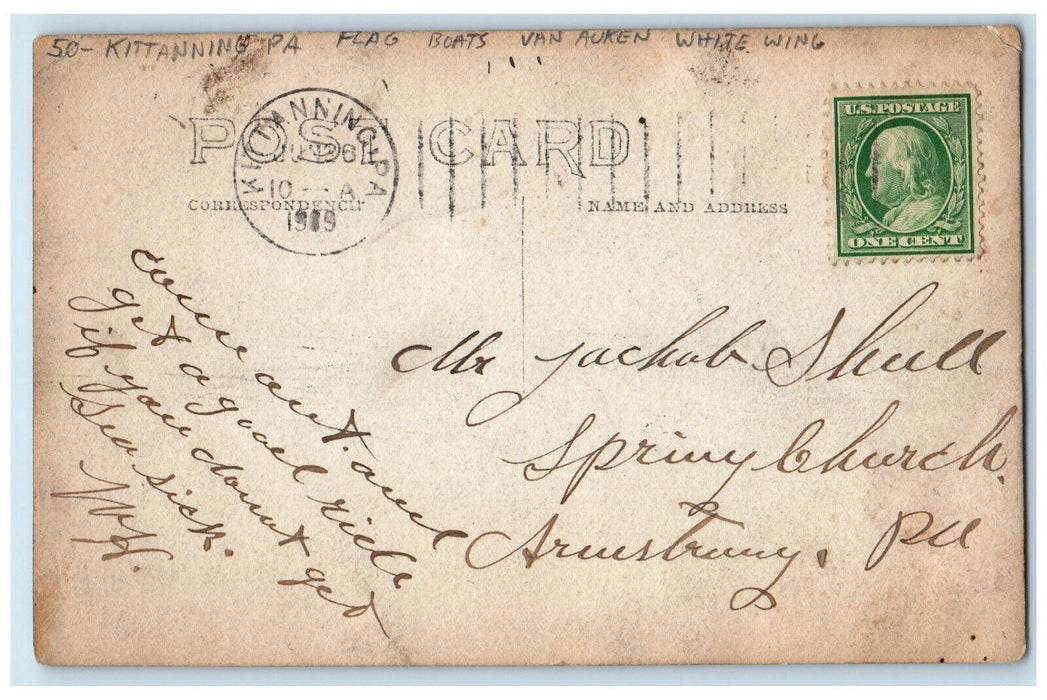 50- KITTANNING PA FLAG BOATS VAN AUKEN WHITE WING
POST CARD
KITTANNING, PA
6
10 - A
1909
CORRESPONDENCE
NAME AND ADDRESS
U.S. POSTAGE
ONE CENT
come out. and
get a good ride
if you donot get
Sea sick.
Mr Jachob Shull
Spring Church.
Armstrong. Pa